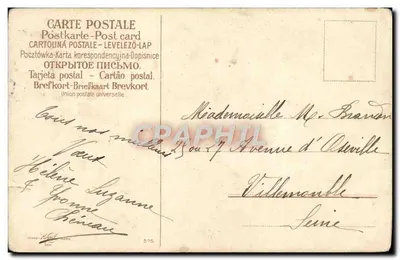 CARTE POSTALE
Postkarte - Post card
CARTOLINA POSTALE - LEVELEZŐ-LAP
Pocztówka-Karta korespondencyjna-Dopisnice
ОТКРЫТОЕ ПИСЬМО.
Tarjeta postal - Cartão postal.
Brefkort-Briefkaart Brevkort
Union postale universelle.
Tous nos meilleurs
Vœux
Hélène Suzanne
Yvonne
Mademoiselle M.
25 ou 27 Avenue d'Oseville
Villemomble
Seine
CPAPHIL